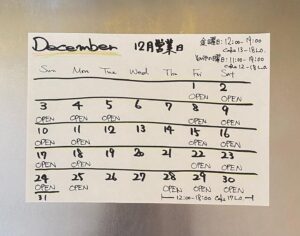 December 12月営業日
金曜日:12:00-19:00
Cafe 13-18 L.O.
11:00-19:00
Cafe 12-18 L.O.
Sun Mon Tue Wed Thu Fri Sat
1 2
OPEN OPEN
3 4 5 6 7 8 9
OPEN OPEN OPEN OPEN
10 11 12 13 14 15 16
OPEN OPEN OPEN OPEN
17 18 19 20 21 22 23
OPEN OPEN OPEN OPEN
24 25 26 27 28 29 30
OPEN OPEN OPEN OPEN OPEN
31 12:00-18:00 Cafe 17 L.O.